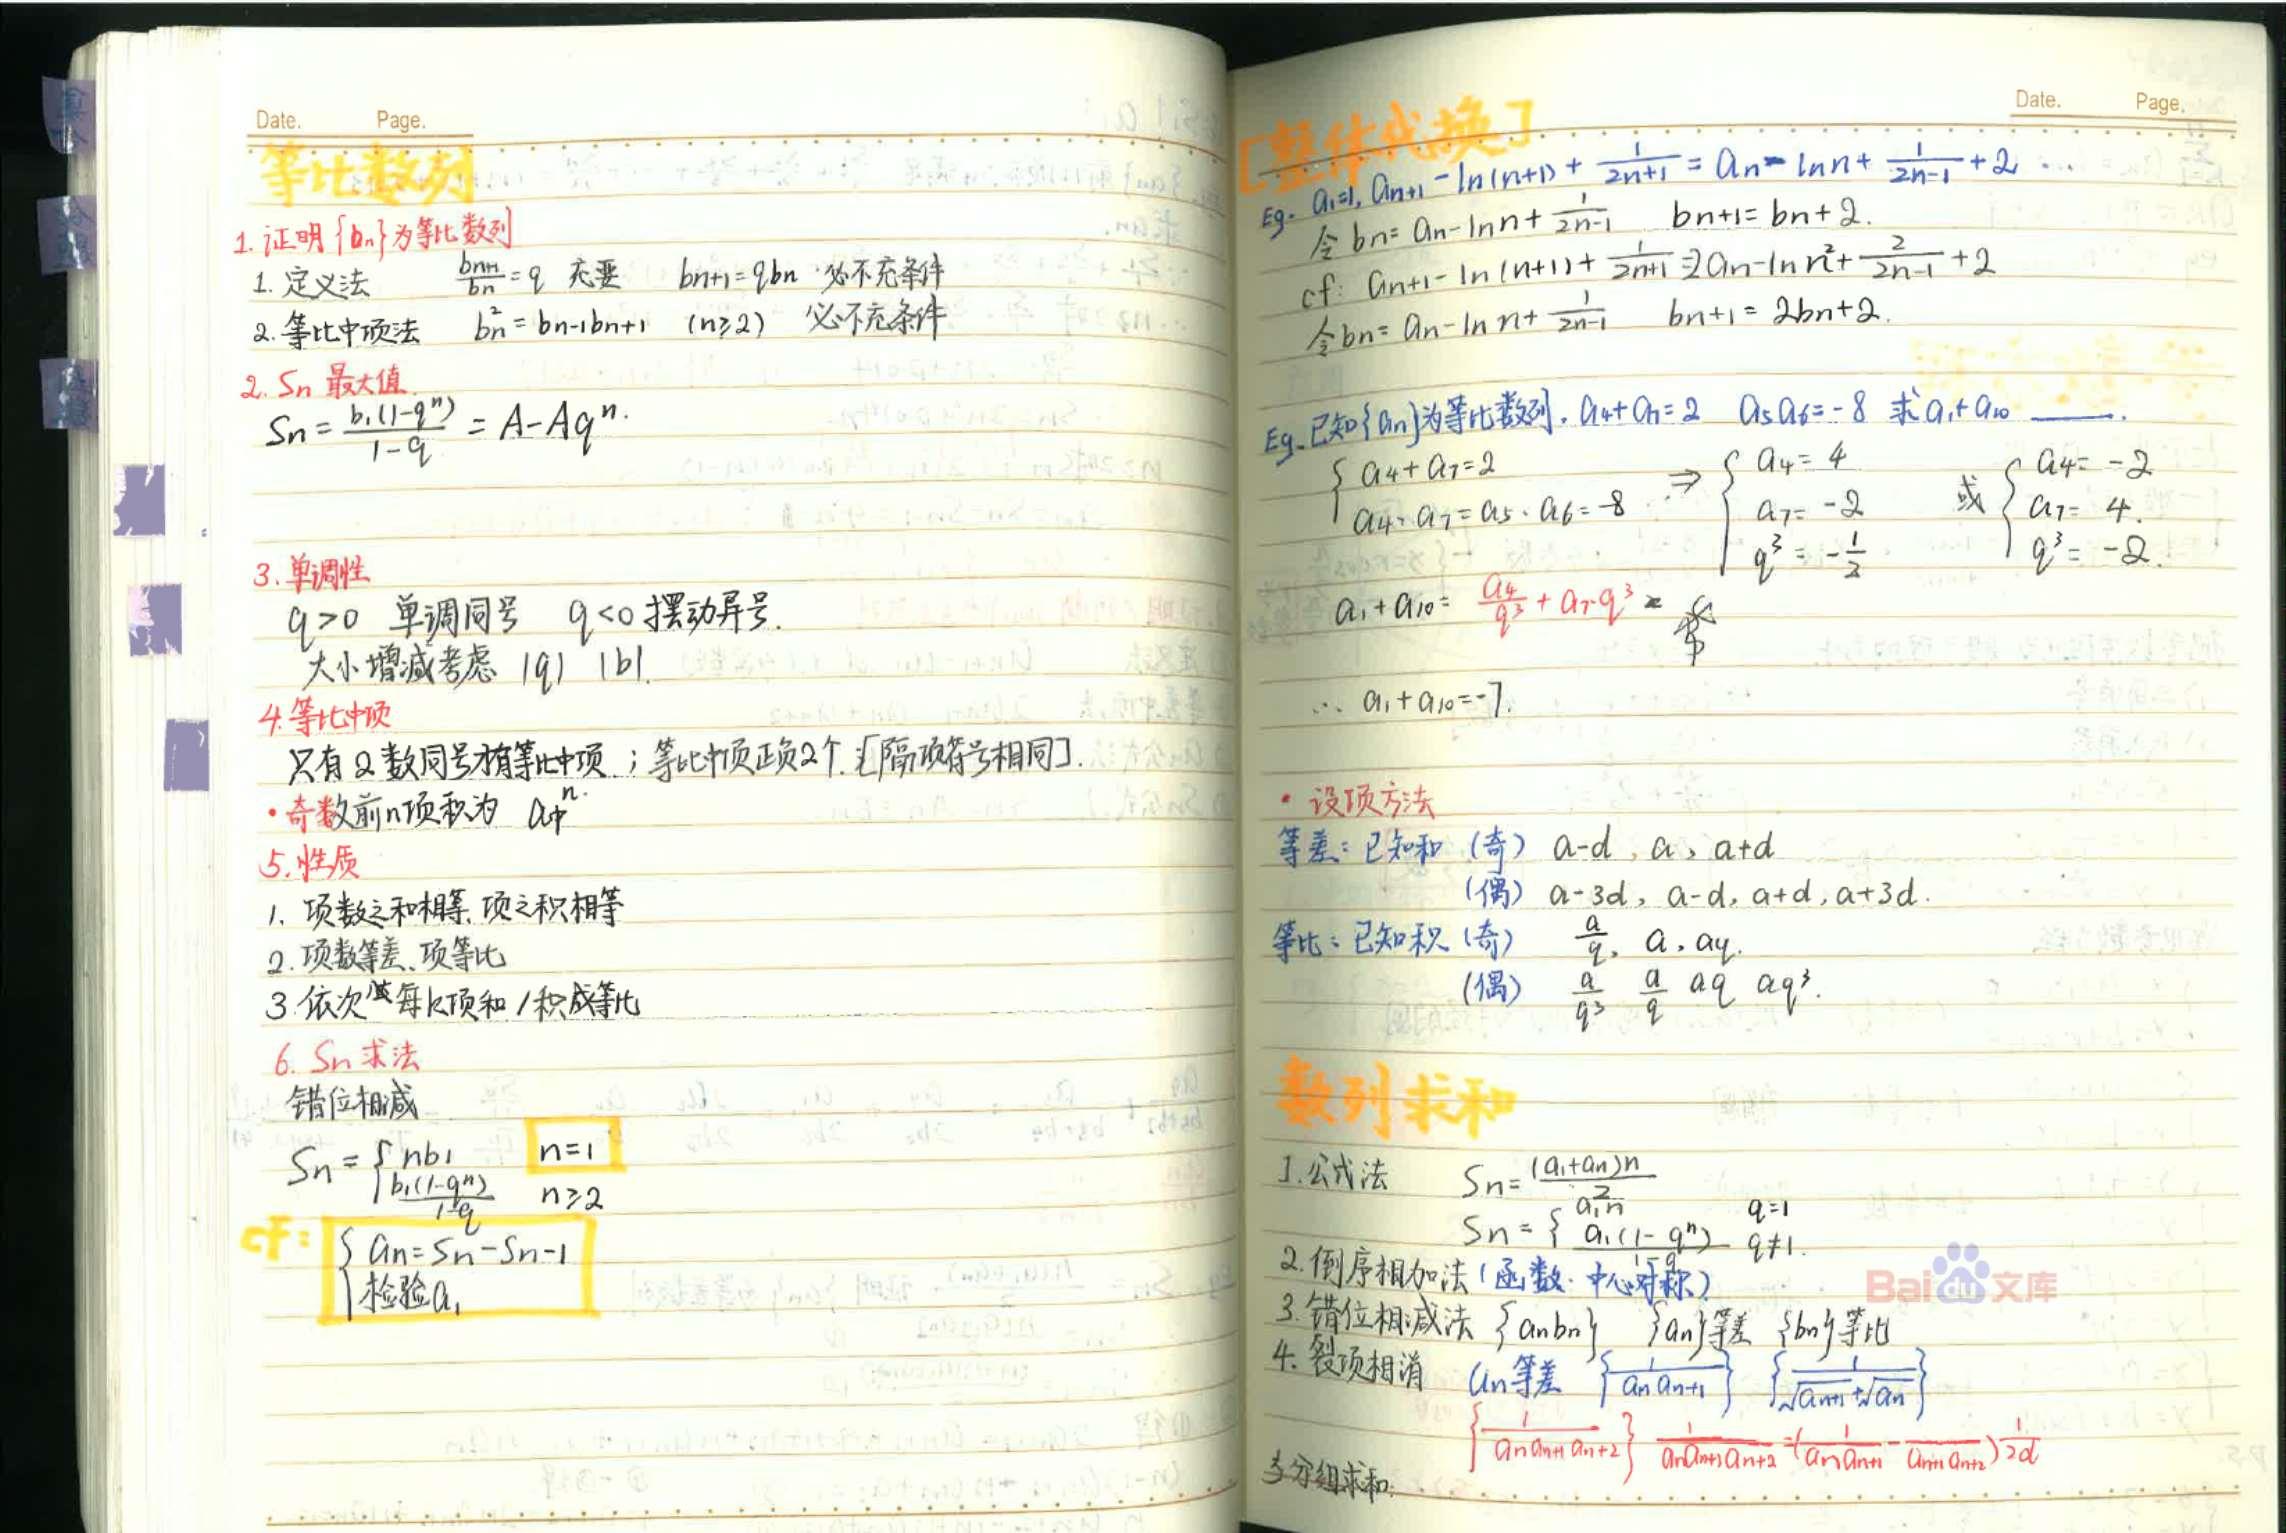 Date. Page.
等比数列
1. 证明{bn}为等比数列
1. 定义法 bn+1/bn = q 充要 bn+1=qbn 必不充条件
2. 等比中项法 bn²=bn-1bn+1 (n≥2) 必不充条件
2. Sn 最大值.
Sn = b1(1-qⁿ)/1-q = A-Aqⁿ.
3. 单调性
q>0 单调同号 q<0 摆动异号.
大小增减考虑 |q| |b|.
4. 等比中项
只有2数同号才有等比中项；等比中项正负2个.[隔项符号相同].
·奇数前n项积为 a中ⁿ.
5. 性质
1. 项数之和相等、项之积相等
2. 项数等差、项等比
3. 依次每k项和/积成等比
6. Sn 求法
错位相减
Sn = { nb1 n=1
b1(1-qⁿ)/1-q n≥2
cf: { an=Sn-Sn-1
检验a1
Date. Page.
[整体代换]
Eg. a1=1, an+1-ln(n+1)+1/2n+1 = an-lnn+1/2n-1+2 ...
令bn=an-lnn+1/2n-1 bn+1=bn+2.
cf: an+1-ln(n+1)+1/2n+1=2an-lnn²+2/2n-1+2
令bn=an-lnn+1/2n-1 bn+1=2bn+2.
Eg. 已知{an}为等比数列. a4+a7=2 a5a6=-8 求a1+a10 ____.
{ a4+a7=2 ⇒ { a4=4 或 { a4=-2
a4·a7=a5·a6=-8 a7=-2 a7=4.
q³=-1/2 q³=-2.
a1+a10=a4/q³+a7·q³=
∴ a1+a10=-7.
· 设项方法
等差: 已知和 (奇) a-d, a, a+d
(偶) a-3d, a-d, a+d, a+3d.
等比: 已知积 (奇) a/q, a, aq.
(偶) a/q³ a/q aq aq³.
数列求和
1. 公式法 Sn=(a1+an)n/2
Sn={ a1n q=1
a1(1-qⁿ)/1-q q≠1.
2. 倒序相加法(函数·中心对称)
3. 错位相减法 {anbn} {an}等差 {bn}等比
4. 裂项相消 an等差 {1/anan+1} {1/√an+1+√an}
{1/anan+1an+2} 1/anan+1an+2=(1/anan+1-1/an+1an+2)1/2d
5 分组求和.
Bai du 文库